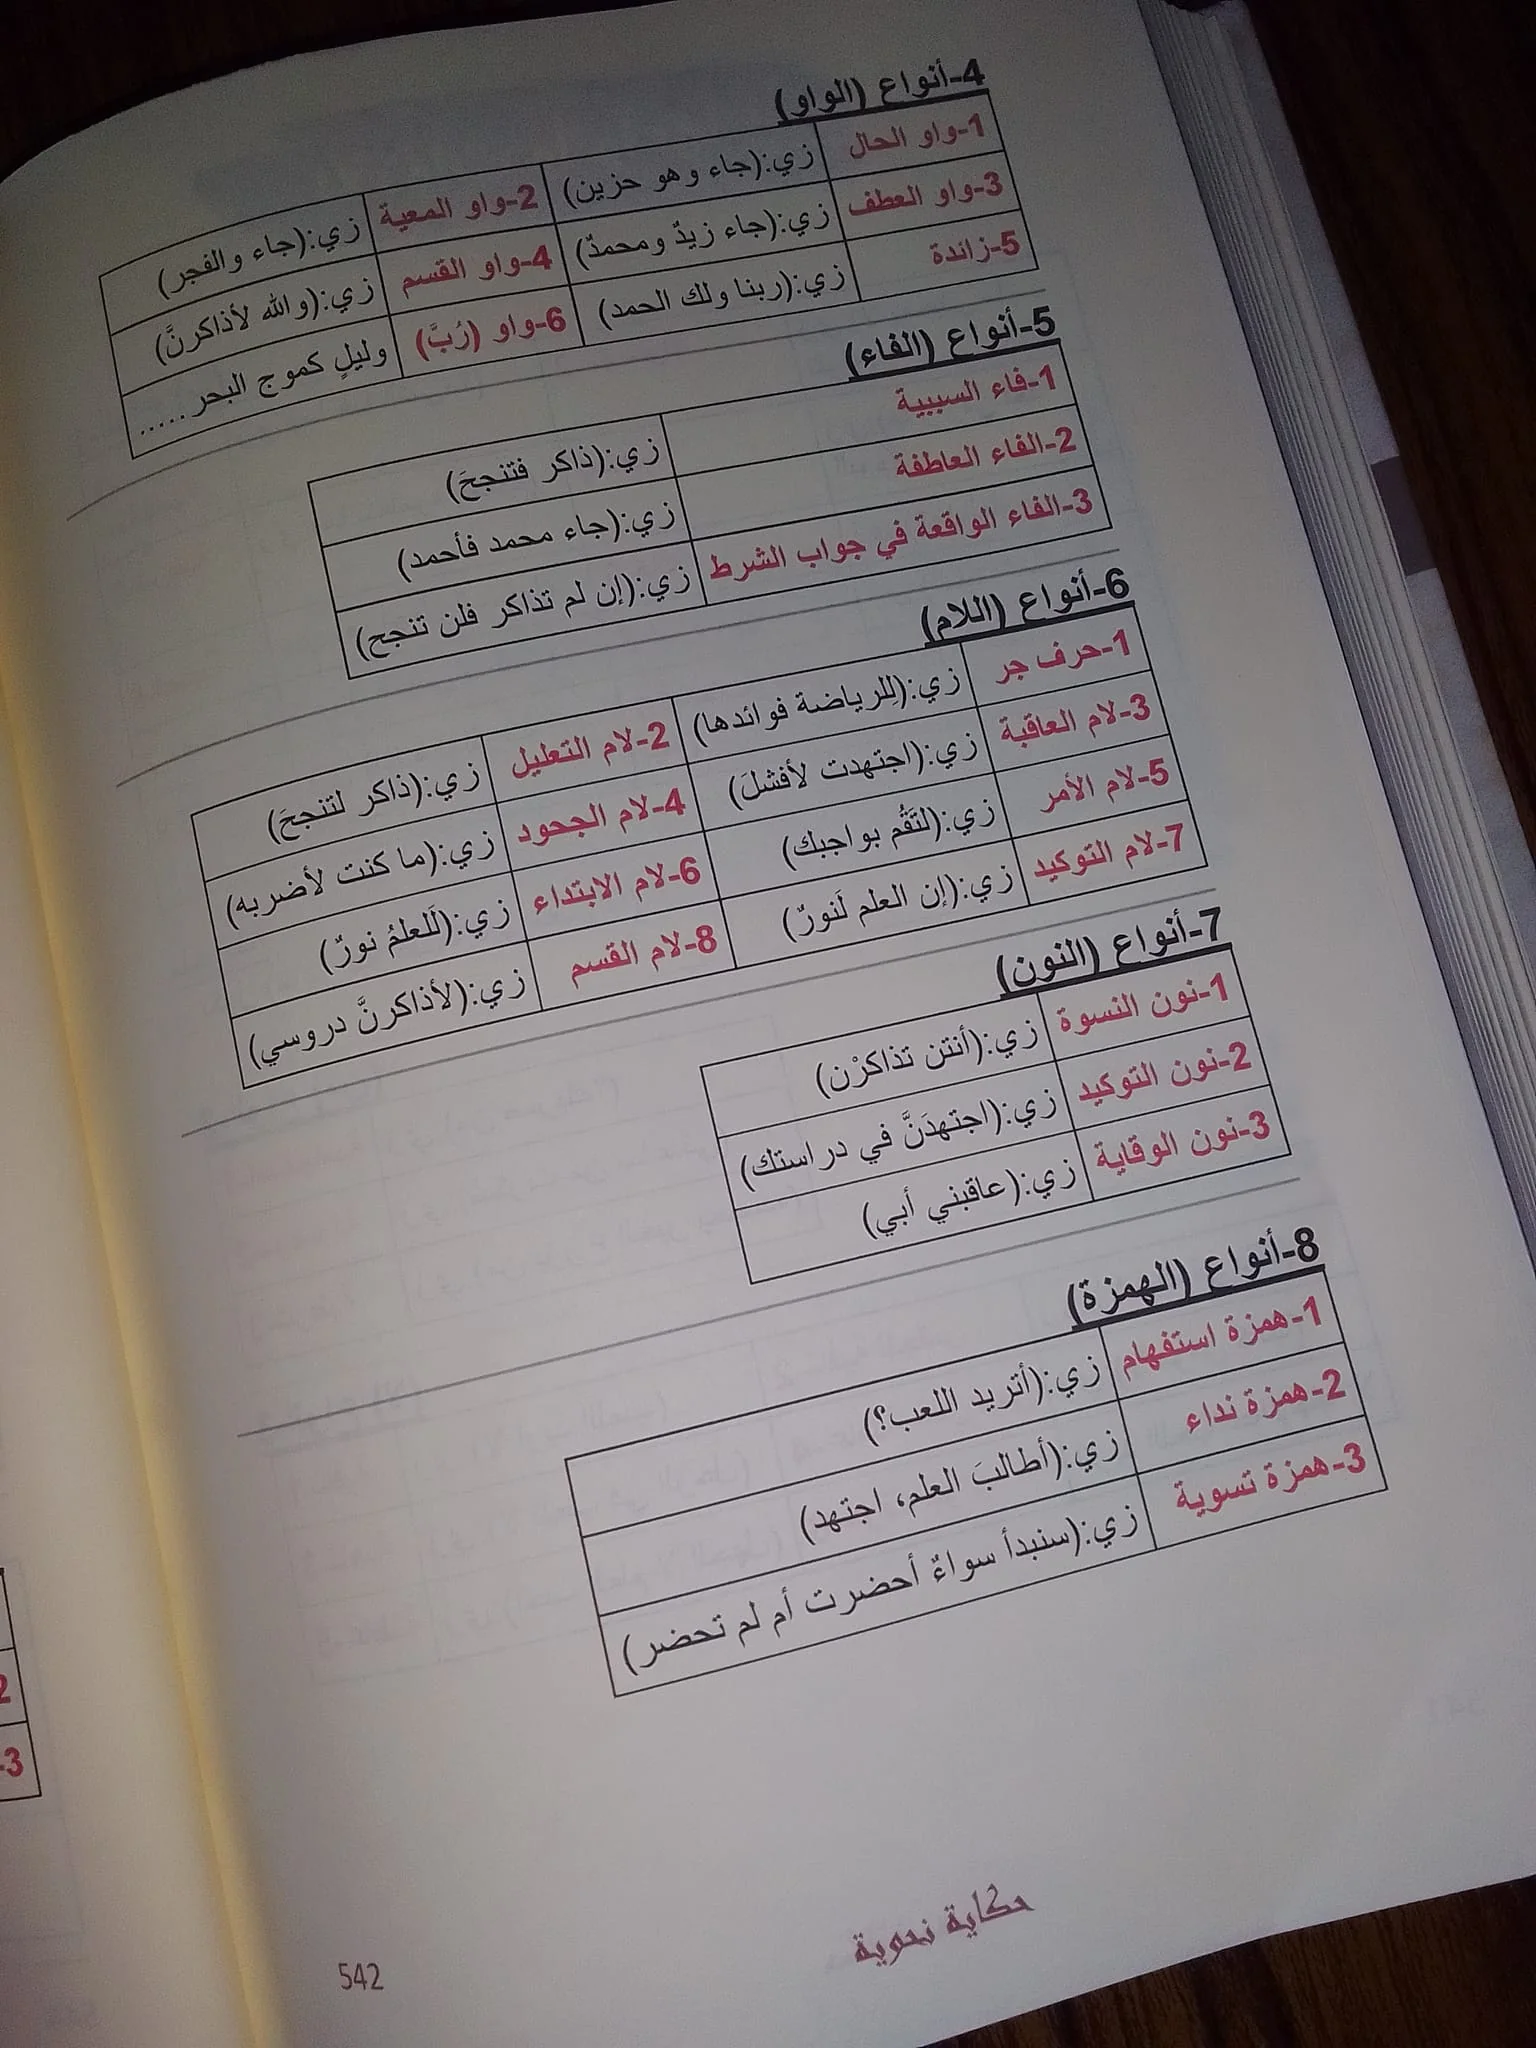 4-أنواع (الواو)
1-واو الحال زي:(جاء وهو حزين) 2-واو المعية زي:(جاء والفجر)
3-واو العطف زي:(جاء زيدٌ ومحمدٌ) 4-واو القسم زي:(والله لأذاكرنَّ)
5-زائدة زي:(ربنا ولك الحمد) 6-واو (رُبَّ) وليلٍ كموج البحر.....
5-أنواع (الفاء)
1-فاء السببية زي:(ذاكر فتنجحَ)
2-الفاء العاطفة زي:(جاء محمد فأحمد)
3-الفاء الواقعة في جواب الشرط زي:(إن لم تذاكر فلن تنجح)
6-أنواع (اللام)
1-حرف جر زي:(لِلرياضة فوائدها) 2-لام التعليل زي:(ذاكر لتنجحَ)
3-لام العاقبة زي:(اجتهدت لأفشلَ) 4-لام الجحود زي:(ما كنت لأضربه)
5-لام الأمر زي:(لتَقُم بواجبك) 6-لام الابتداء زي:(لَلعلمُ نورٌ)
7-لام التوكيد زي:(إن العلم لَنورٌ) 8-لام القسم زي:(لأذاكرنَّ دروسي)
7-أنواع (النون)
1-نون النسوة زي:(أنتن تذاكرْن)
2-نون التوكيد زي:(اجتهدَنَّ في دراستك)
3-نون الوقاية زي:(عاقبني أبي)
8-أنواع (الهمزة)
1-همزة استفهام زي:(أتريد اللعب؟)
2-همزة نداء زي:(أطالبَ العلم، اجتهد)
3-همزة تسوية زي:(سنبدأ سواءٌ أحضرت أم لم تحضر)
حكاية نحوية
542
2
3-